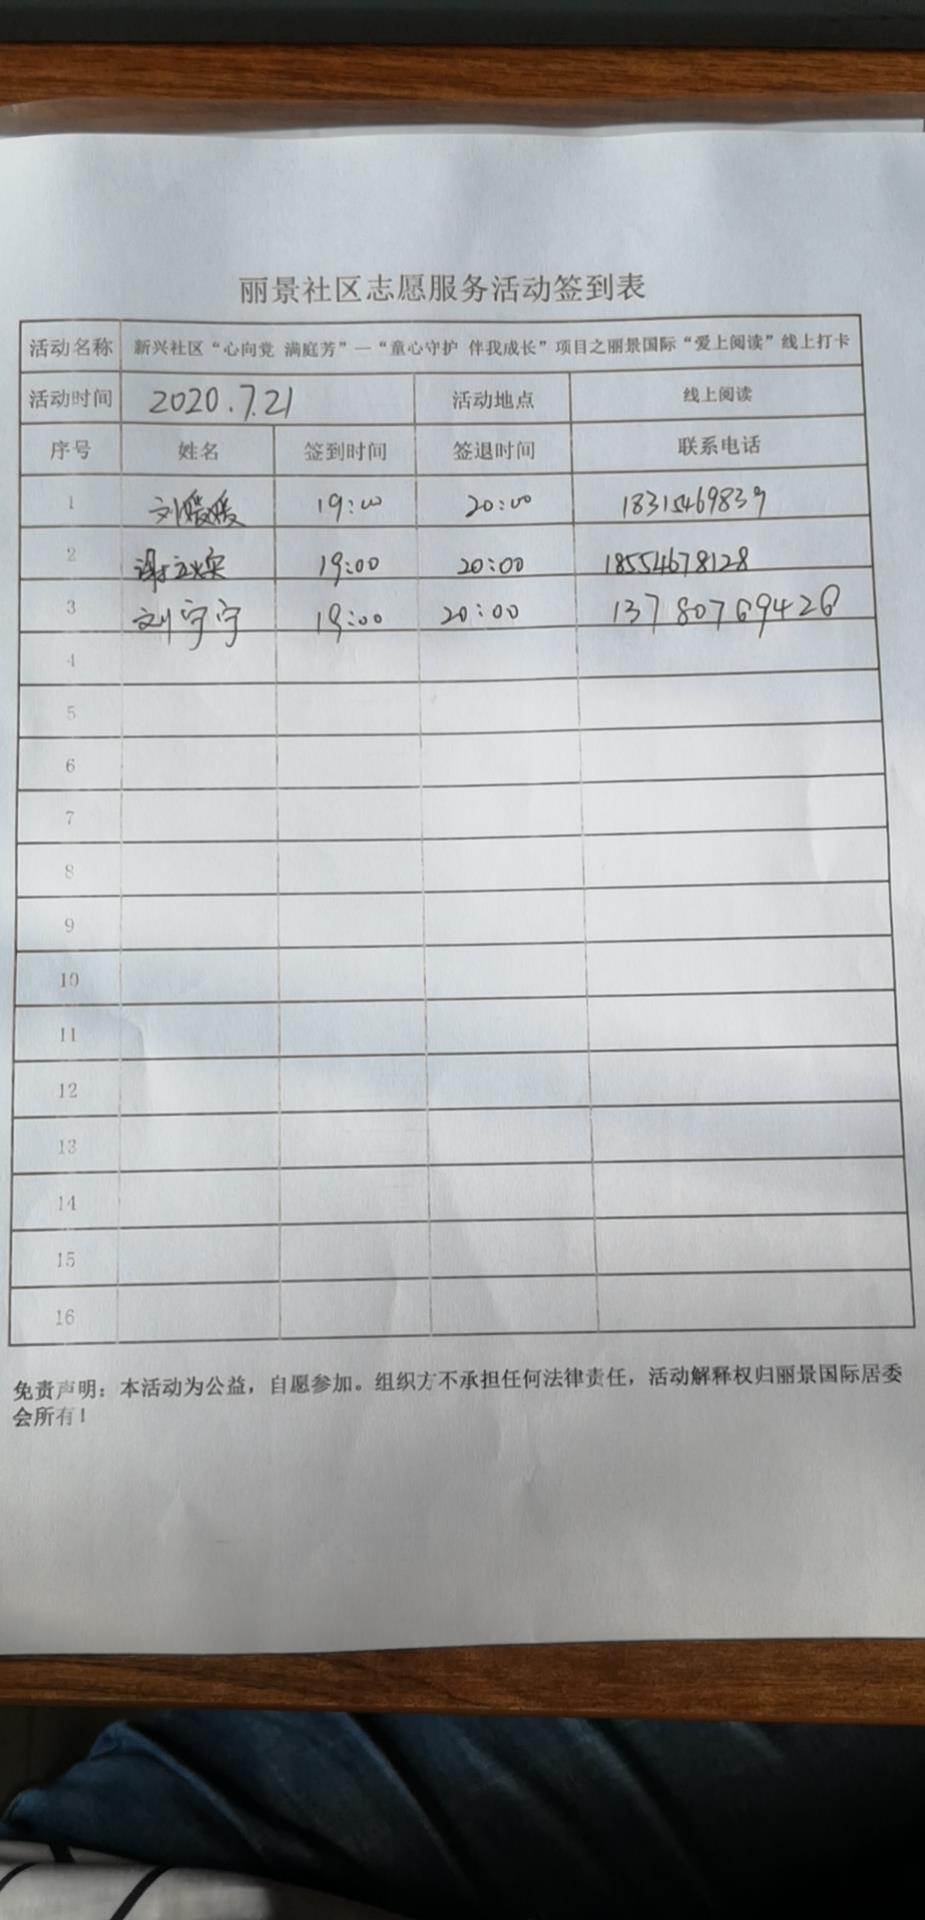 丽景社区志愿服务活动签到表
活动名称 新兴社区“心向党 满庭芳”—“童心守护 伴我成长”项目之丽景国际“爱上阅读”线上打卡
活动时间 2020.7.21 活动地点 线上阅读
序号 姓名 签到时间 签退时间 联系电话
1 刘媛媛 19:00 20:00 18315469839
2 谢 19:00 20:00 18554678128
3 刘宁宁 19:00 20:00 13780769426
4
5
6
7
8
9
10
11
12
13
14
15
16
免责声明：本活动为公益，自愿参加。组织方不承担任何法律责任，活动解释权归丽景国际居委
会所有！